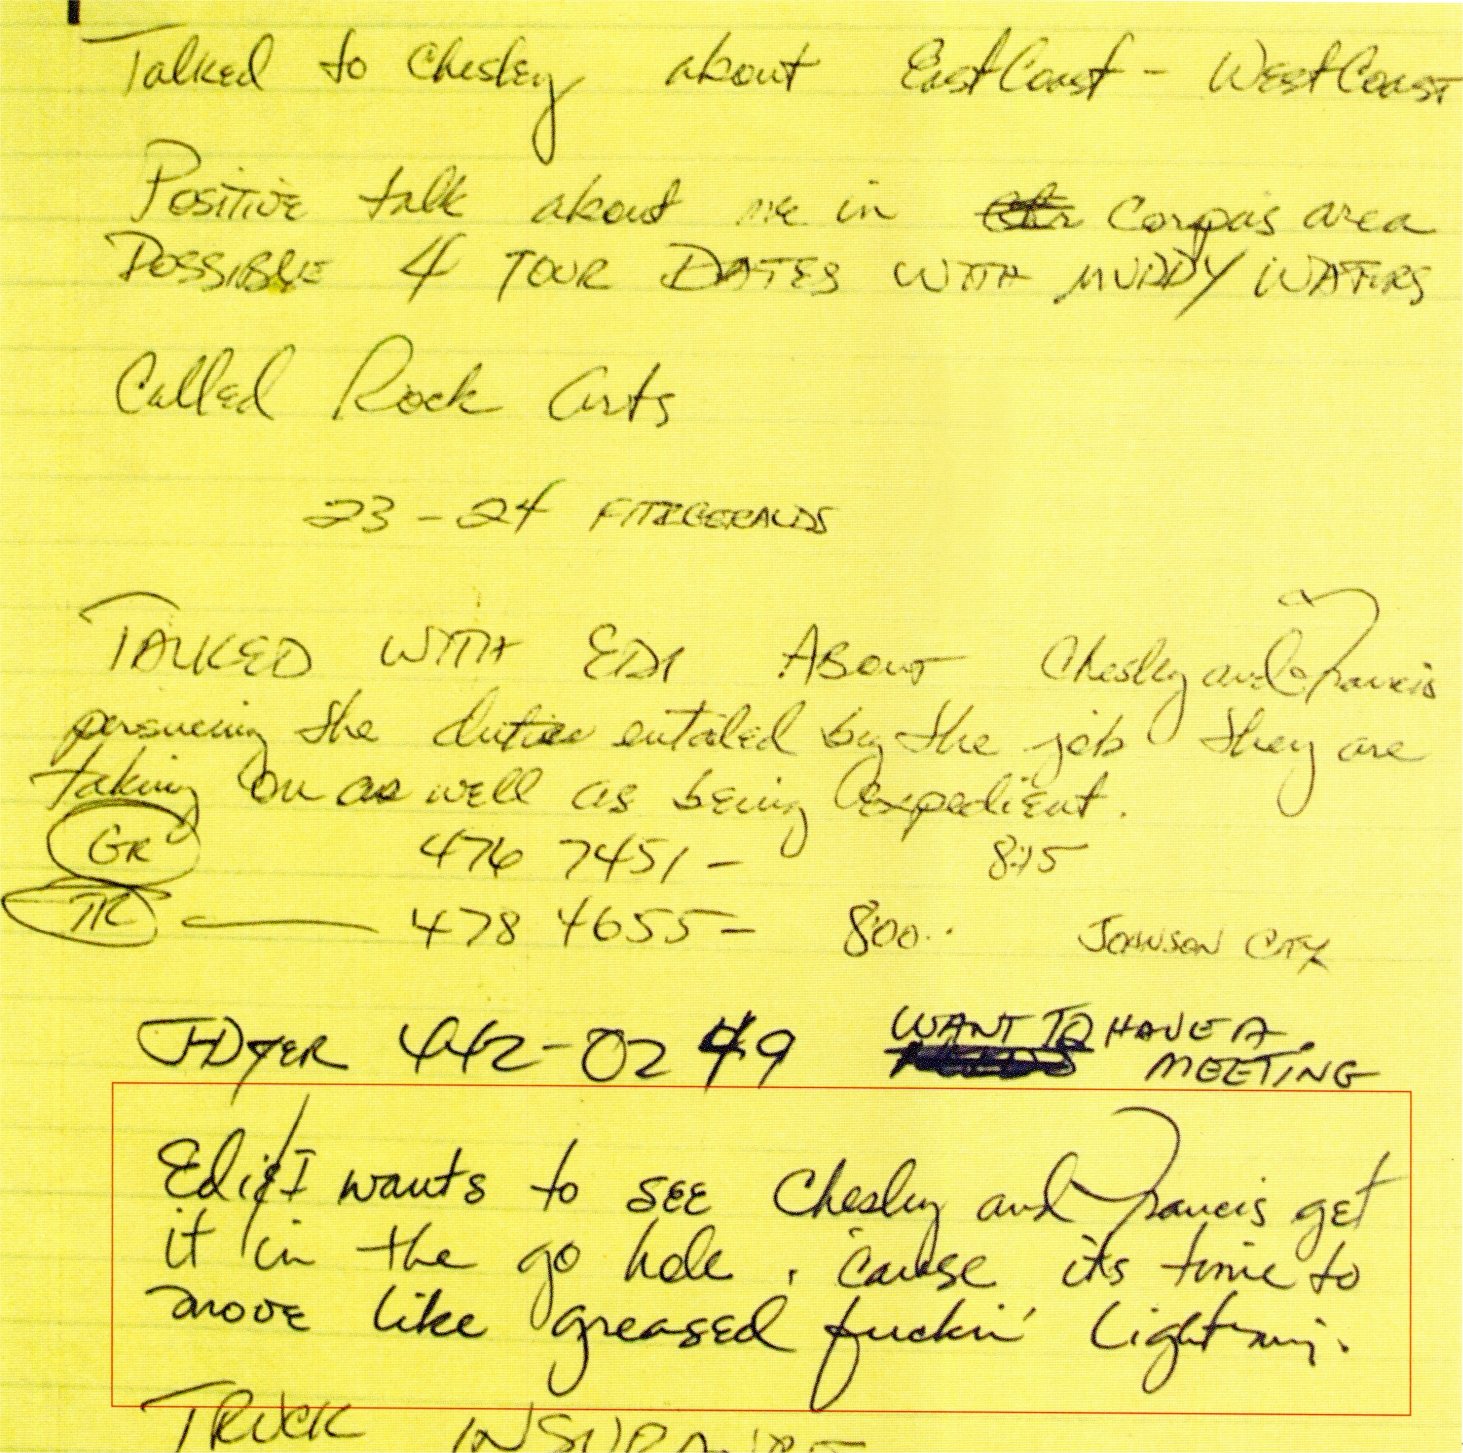 Talked to Chesley about East Coast - West Coast
Positive talk about me in Corpus area
POSSIBLE 4 TOUR DATES WITH MUDDY WATERS
Called Rock Arts
23-24 FITZGERALDS
TALKED WITH EDI ABOUT Chesley and Francis
persueing the duties entailed by the job they are
taking on as well as being expedient.
GR 476 7451- 8:15
TR 478 4655- 800.. JOHNSON CITY
J-DYER 442-0249 WANT TO HAVE A
MEETING
Edi & I wants to SEE Chesley and Francis get
it in the go hole. 'cause its time to
move like greased fuckin' lightning.
TRUCK INSURANCE